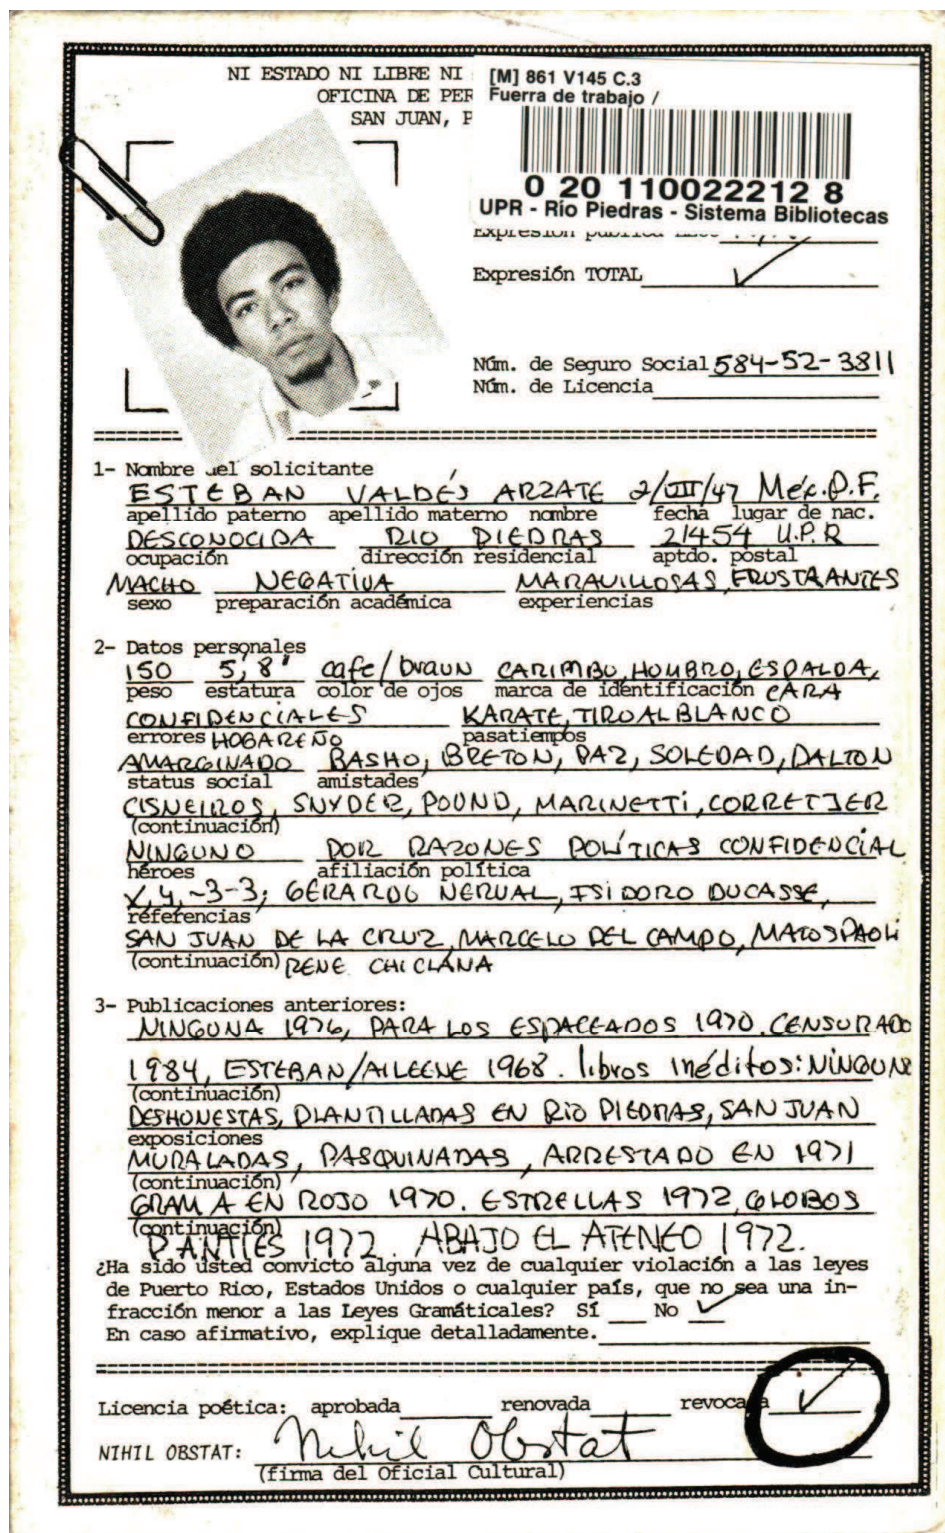 NI ESTADO NI LIBRE NI
OFICINA DE PER
SAN JUAN, P
[M] 861 V145 C.3
Fuerra de trabajo /
0 20 110022212 8
UPR - Río Piedras - Sistema Bibliotecas
Expresión pública
Expresión TOTAL ✓
Núm. de Seguro Social 584-52-3811
Núm. de Licencia
1- Nombre del solicitante
ESTEBAN VALDÉS ARZATE 2/III/47 Méx. D.F.
apellido paterno apellido materno nombre fecha lugar de nac.
DESCONOCIDA RIO PIEDRAS 21454 U.P.R
ocupación dirección residencial aptdo. postal
MACHO NEGATIVA MARAVILLOSAS, FRUSTRANTES
sexo preparación académica experiencias
2- Datos personales
150 5,8" cafe/braun CARIMBO, HOMBRO, ESPALDA,
peso estatura color de ojos marca de identificación CARA
CONFIDENCIALES KARATE, TIRO AL BLANCO
errores HOGAREÑO pasatiempos
AMARGINADO BASHO, BRETON, PAZ, SOLEDAD, DALTON
status social amistades
CISNEIROS, SNYDER, POUND, MARINETTI, CORRETJER
(continuación)
NINGUNO POR RAZONES POLÍTICAS CONFIDENCIAL
héroes afiliación política
X,4,-3-3; GERARDO NERVAL, ISIDORO DUCASSE,
referencias
SAN JUAN DE LA CRUZ, MARCELO DEL CAMPO, MATOS PAOLI
(continuación) RENE CHICLANA
3- Publicaciones anteriores:
NINGUNA 1976, PARA LOS ESPACEADOS 1970. CENSURADO
1984, ESTEBAN/AILEENE 1968. libros inéditos: NINGUNO
(continuación)
DESHONESTAS, PLANTILLADAS EN RIO PIEDRAS, SAN JUAN
exposiciones
MURALADAS, PASQUINADAS, ARRESTADO EN 1971
(continuación)
GRAMA EN ROJO 1970. ESTRELLAS 1972, GLOBOS
(continuación)
PANTIES 1972. ABAJO EL ATENEO 1972.
¿Ha sido usted convicto alguna vez de cualquier violación a las leyes
de Puerto Rico, Estados Unidos o cualquier país, que no sea una in-
fracción menor a las Leyes Gramáticales? Sí ___ No ✓
En caso afirmativo, explique detalladamente.
Licencia poética: aprobada renovada revocada ✓
NIHIL OBSTAT: Nihil Obstat
(firma del Oficial Cultural)